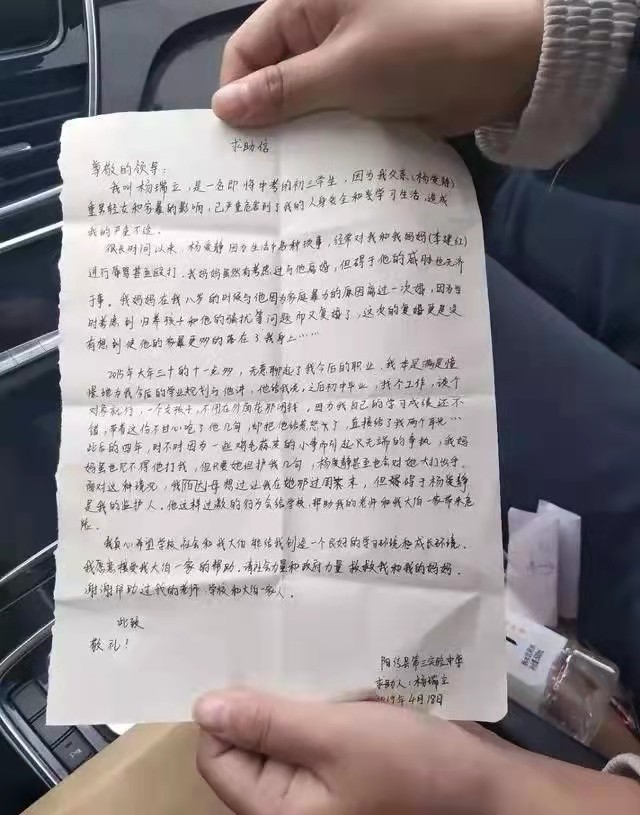 求助信
尊敬的领导：
我叫杨瑞立，是一名即将中考的初三学生，因为我父亲(杨爱静)
重男轻女和家暴的影响，已严重危害到了我的人身安全和学习生活，造成
我的严重不适。
很长时间以来，杨爱静因为生活中各种琐事，经常对我和我妈妈(李建红)
进行辱骂甚至殴打。我妈妈虽然有考虑过与他离婚，但碍于他的威胁也无济
于事。我妈妈在我八岁的时候与他因为家庭暴力的原因离过一次婚，因为当
时考虑到归养孩子和他的骚扰等问题而又复婚了，这次的复婚更是没
有想到使他的家暴更多的落在了我身上……
2015年大年三十的十一点多，无意聊起了我今后的职业，我本是满是憧
憬地为我今后的学业规划与他讲，他给我说，之后初中毕业，找个工作，谈个
对象就行，一个女孩子，不用在外面花那闲钱。因为我自己的学习成绩还不
错，带着这份不甘心吃了他几句，却把他给惹怒了，直接给了我两个耳光…
此后的四年，时不时因为一些鸡毛蒜皮的小事而引起又无端的争执，我妈
妈虽也见不得他打我，但只要她袒护我几句，杨爱静甚至也会对她大打出手。
面对这种情况，我伯母想过让我在她那过周末，但碍于杨爱静
是我的监护人。他这样过激的行为会给学校，帮助我的老师和我大伯一家带来危
险。
我真心希望学校，社会和我大伯能给我创造一个良好的学习环境和成长环境。
我愿意接受我大伯一家的帮助。请社会力量和政府力量救救我和我的妈妈。
谢谢帮助过我的老师，学校和大伯一家人。
此致
敬礼！
阳信县第三实验中学
求助人：杨瑞立
2019年4月18日